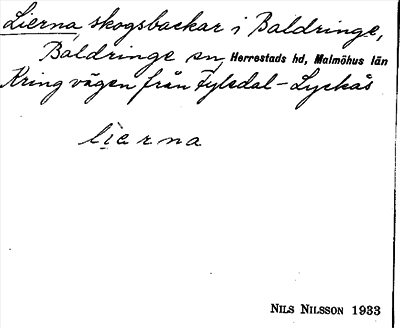 Lierna, skogsbackar i Baldringe,
Baldringe sn, Herrestads hd, Malmöhus län
Kring vägen från Fyledal - Lyckås
lierna
NILS NILSSON 1933